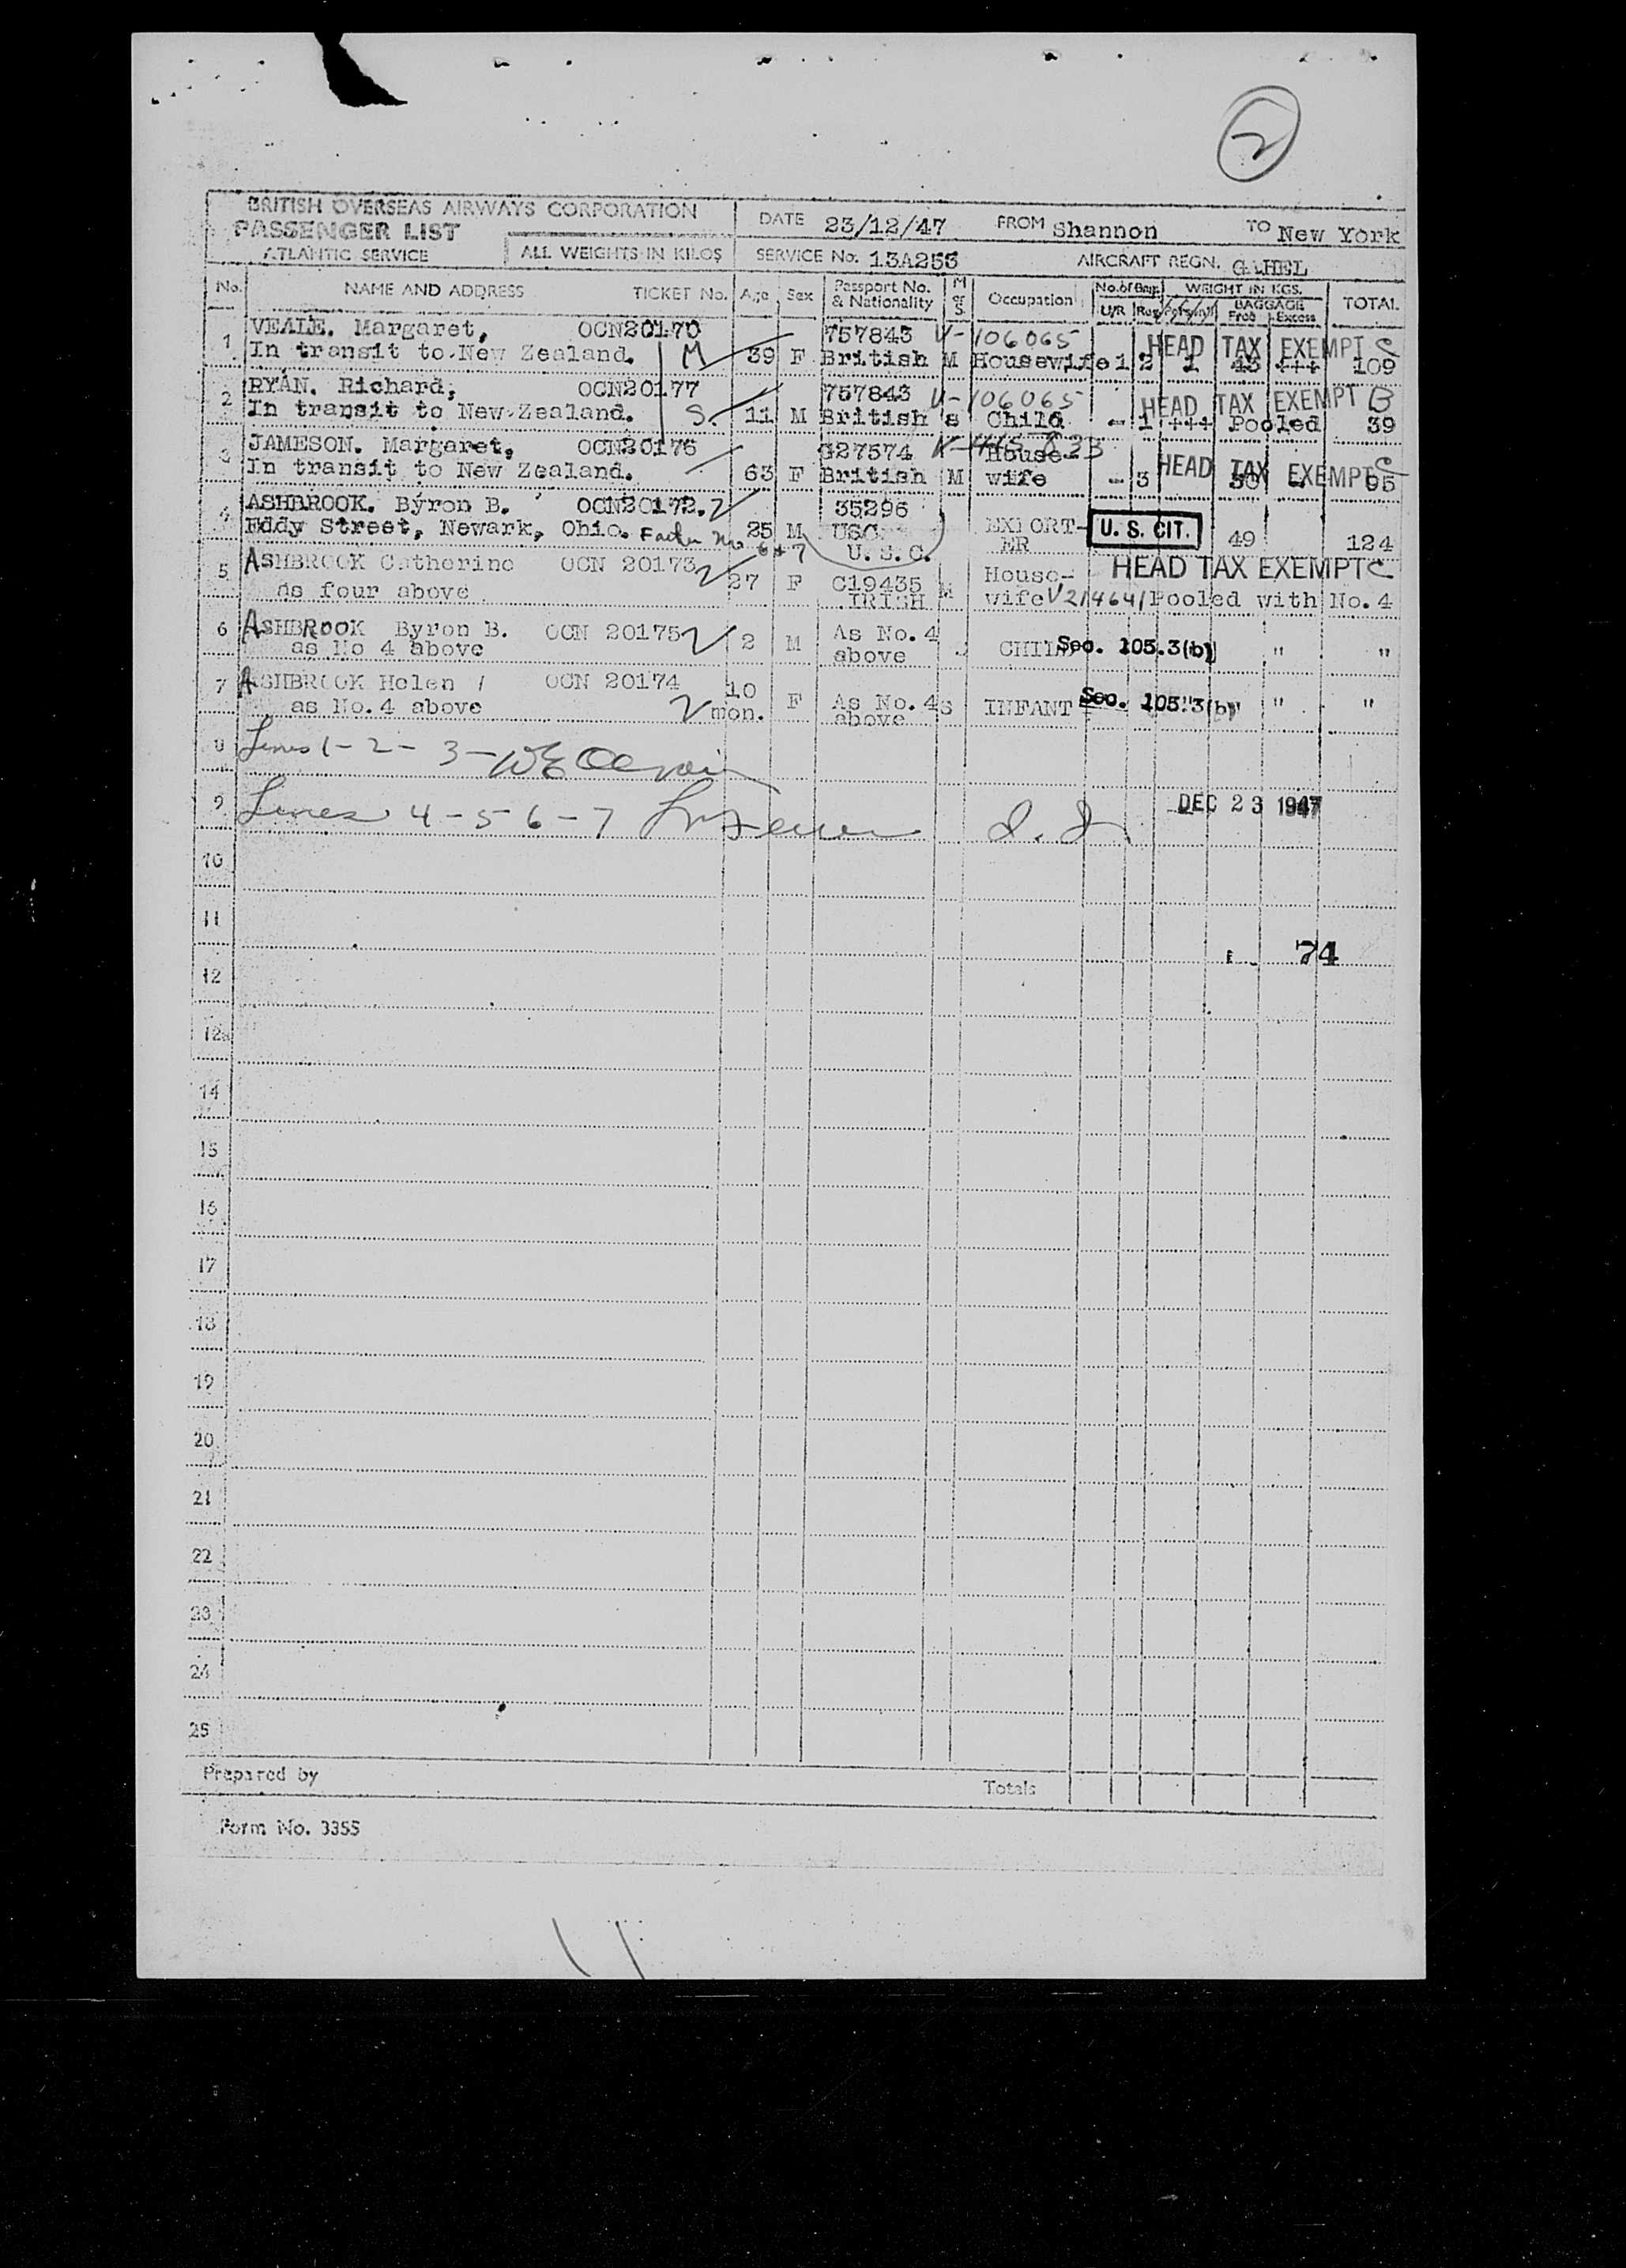 2
BRITISH OVERSEAS AIRWAYS CORPORATION
PASSENGER LIST
ATLANTIC SERVICE
ALL WEIGHTS IN KILOS
DATE 23/12/47 FROM Shannon TO New York
SERVICE No. 13A253 AIRCRAFT REGN. GAHEL
No. NAME AND ADDRESS TICKET No. Age Sex Passport No. & Nationality M or S Occupation No. of Bag. U/R Reg WEIGHT IN KGS. BAGGAGE Free Excess TOTAL
1 VEALE. Margaret, OCN20170 757843 V-106065 HEAD TAX EXEMPT C
In transit to New Zealand. M 39 F British M Housewife 1 2 1 43 +++ 109
2 RYAN. Richard, OCN20177 757843 V-106065 HEAD TAX EXEMPT B
In transit to New Zealand. S. 11 M British s Child - 1 +++ Pooled 39
3 JAMESON. Margaret, OCN20176 327574 House- HEAD TAX EXEMPT C
In transit to New Zealand. 63 F British M wife - 3 95
4 ASHBROOK. Byron B. OCN20172. 35296 EXPORT- U. S. CIT.
Eddy Street, Newark, Ohio. 25 M USC ER 49 124
U. S. C.
5 ASHBROOK Catherine OCN 20173 27 F C19435 M House- HEAD TAX EXEMPT C
as four above IRISH wife V214641 Pooled with No. 4
6 ASHBROOK Byron B. OCN 20175 2 M As No. 4 CHILD Sec. 105.3(b) " "
as No 4 above above
7 ASHBROOK Helen OCN 20174 10 F As No. 4 S INFANT Sec. 105.3(b) " "
as No. 4 above mon. above
8 Lines 1-2-3-
9 Lines 4-5-6-7 DEC 23 1947
10
11
74
12
12a
14
15
16
17
18
19
20
21
22
23
24
25
Prepared by Totals
Form No. 3355